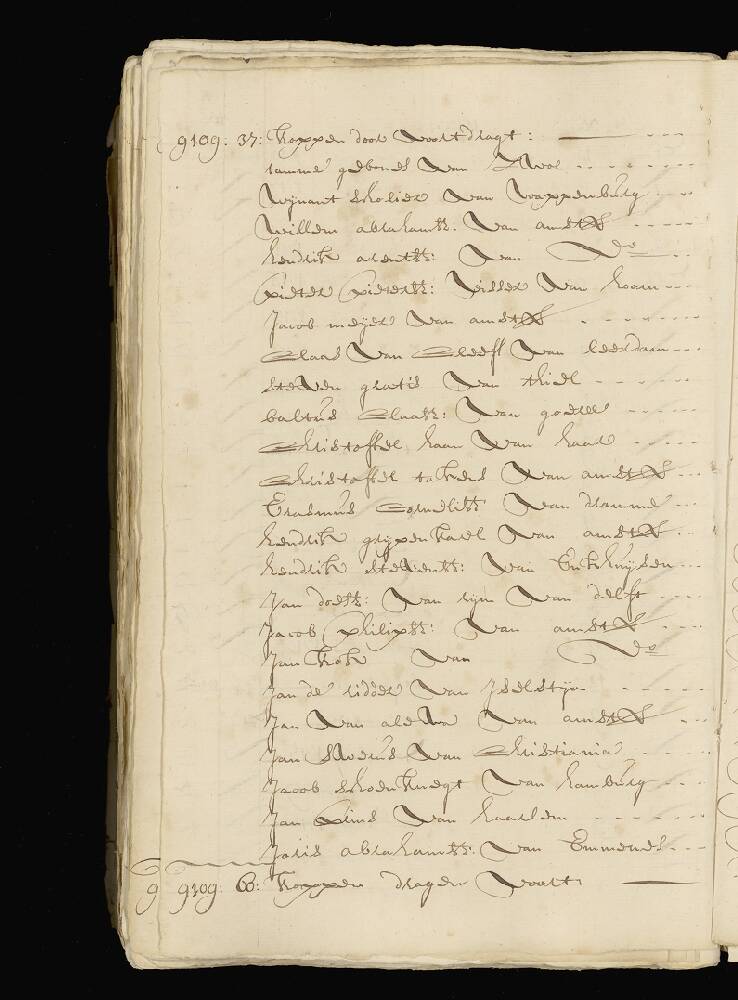 9109: 37: koppen door voortdragt:
tamme gebones van Zwol
Wijnant scholier van Wappenburg
Willem abrahamsz. van amst
hendrik arentsz: van do
Pieter Pietersz: visser van hoorn
Jacob meijer van amst
Claas van Cleeff van leerdam
steven gratis van thiel
baltus Claasz: van goude
Christoffel haan van
Christoffel van amst
Erasmus Cornelisz van dramme
hendrik grijpenkarel van amst
hendrik stevensz: van Enkhuijsen
Jan doesz: van rijn van delft
Jacob Philipsz: van amst
Jan kok van do
Jan de ridder van Jselstijn
Jan van alewa van amst
Jan van Christiania
Jacob schoenknegt van hamburg
Jan Pims van haarlem
Joris abrahamsz: van Emmenes
9 9109: 60: koppen dragen voort